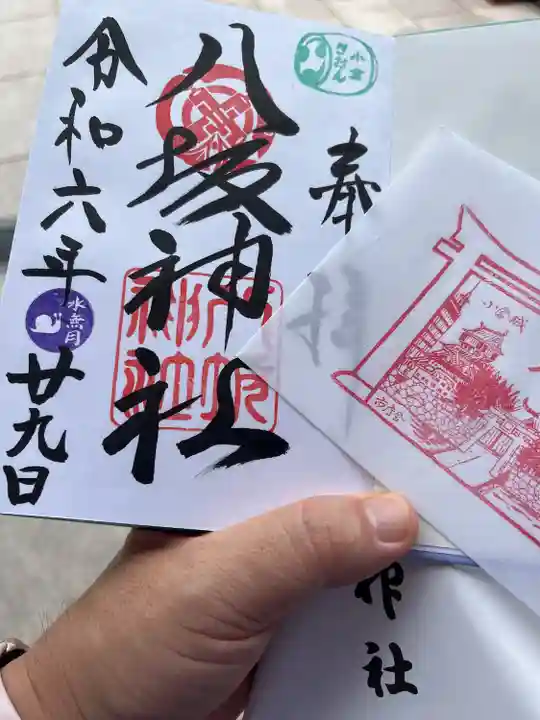 奉拝
八坂神社
八坂神社
令和六年
水無月
廿九日
小倉
ぎおん
小倉城
社